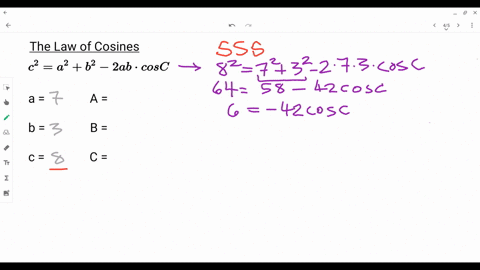 4/5
The Law of Cosines
SSS
c² = a² + b² − 2ab · cosC → 8² = 7² + 3² − 2 · 7 · 3 · cosC
64 = 58 − 42cosC
6 = −42cosC
a = 7 A =
b = 3 B =
c = 8 C =